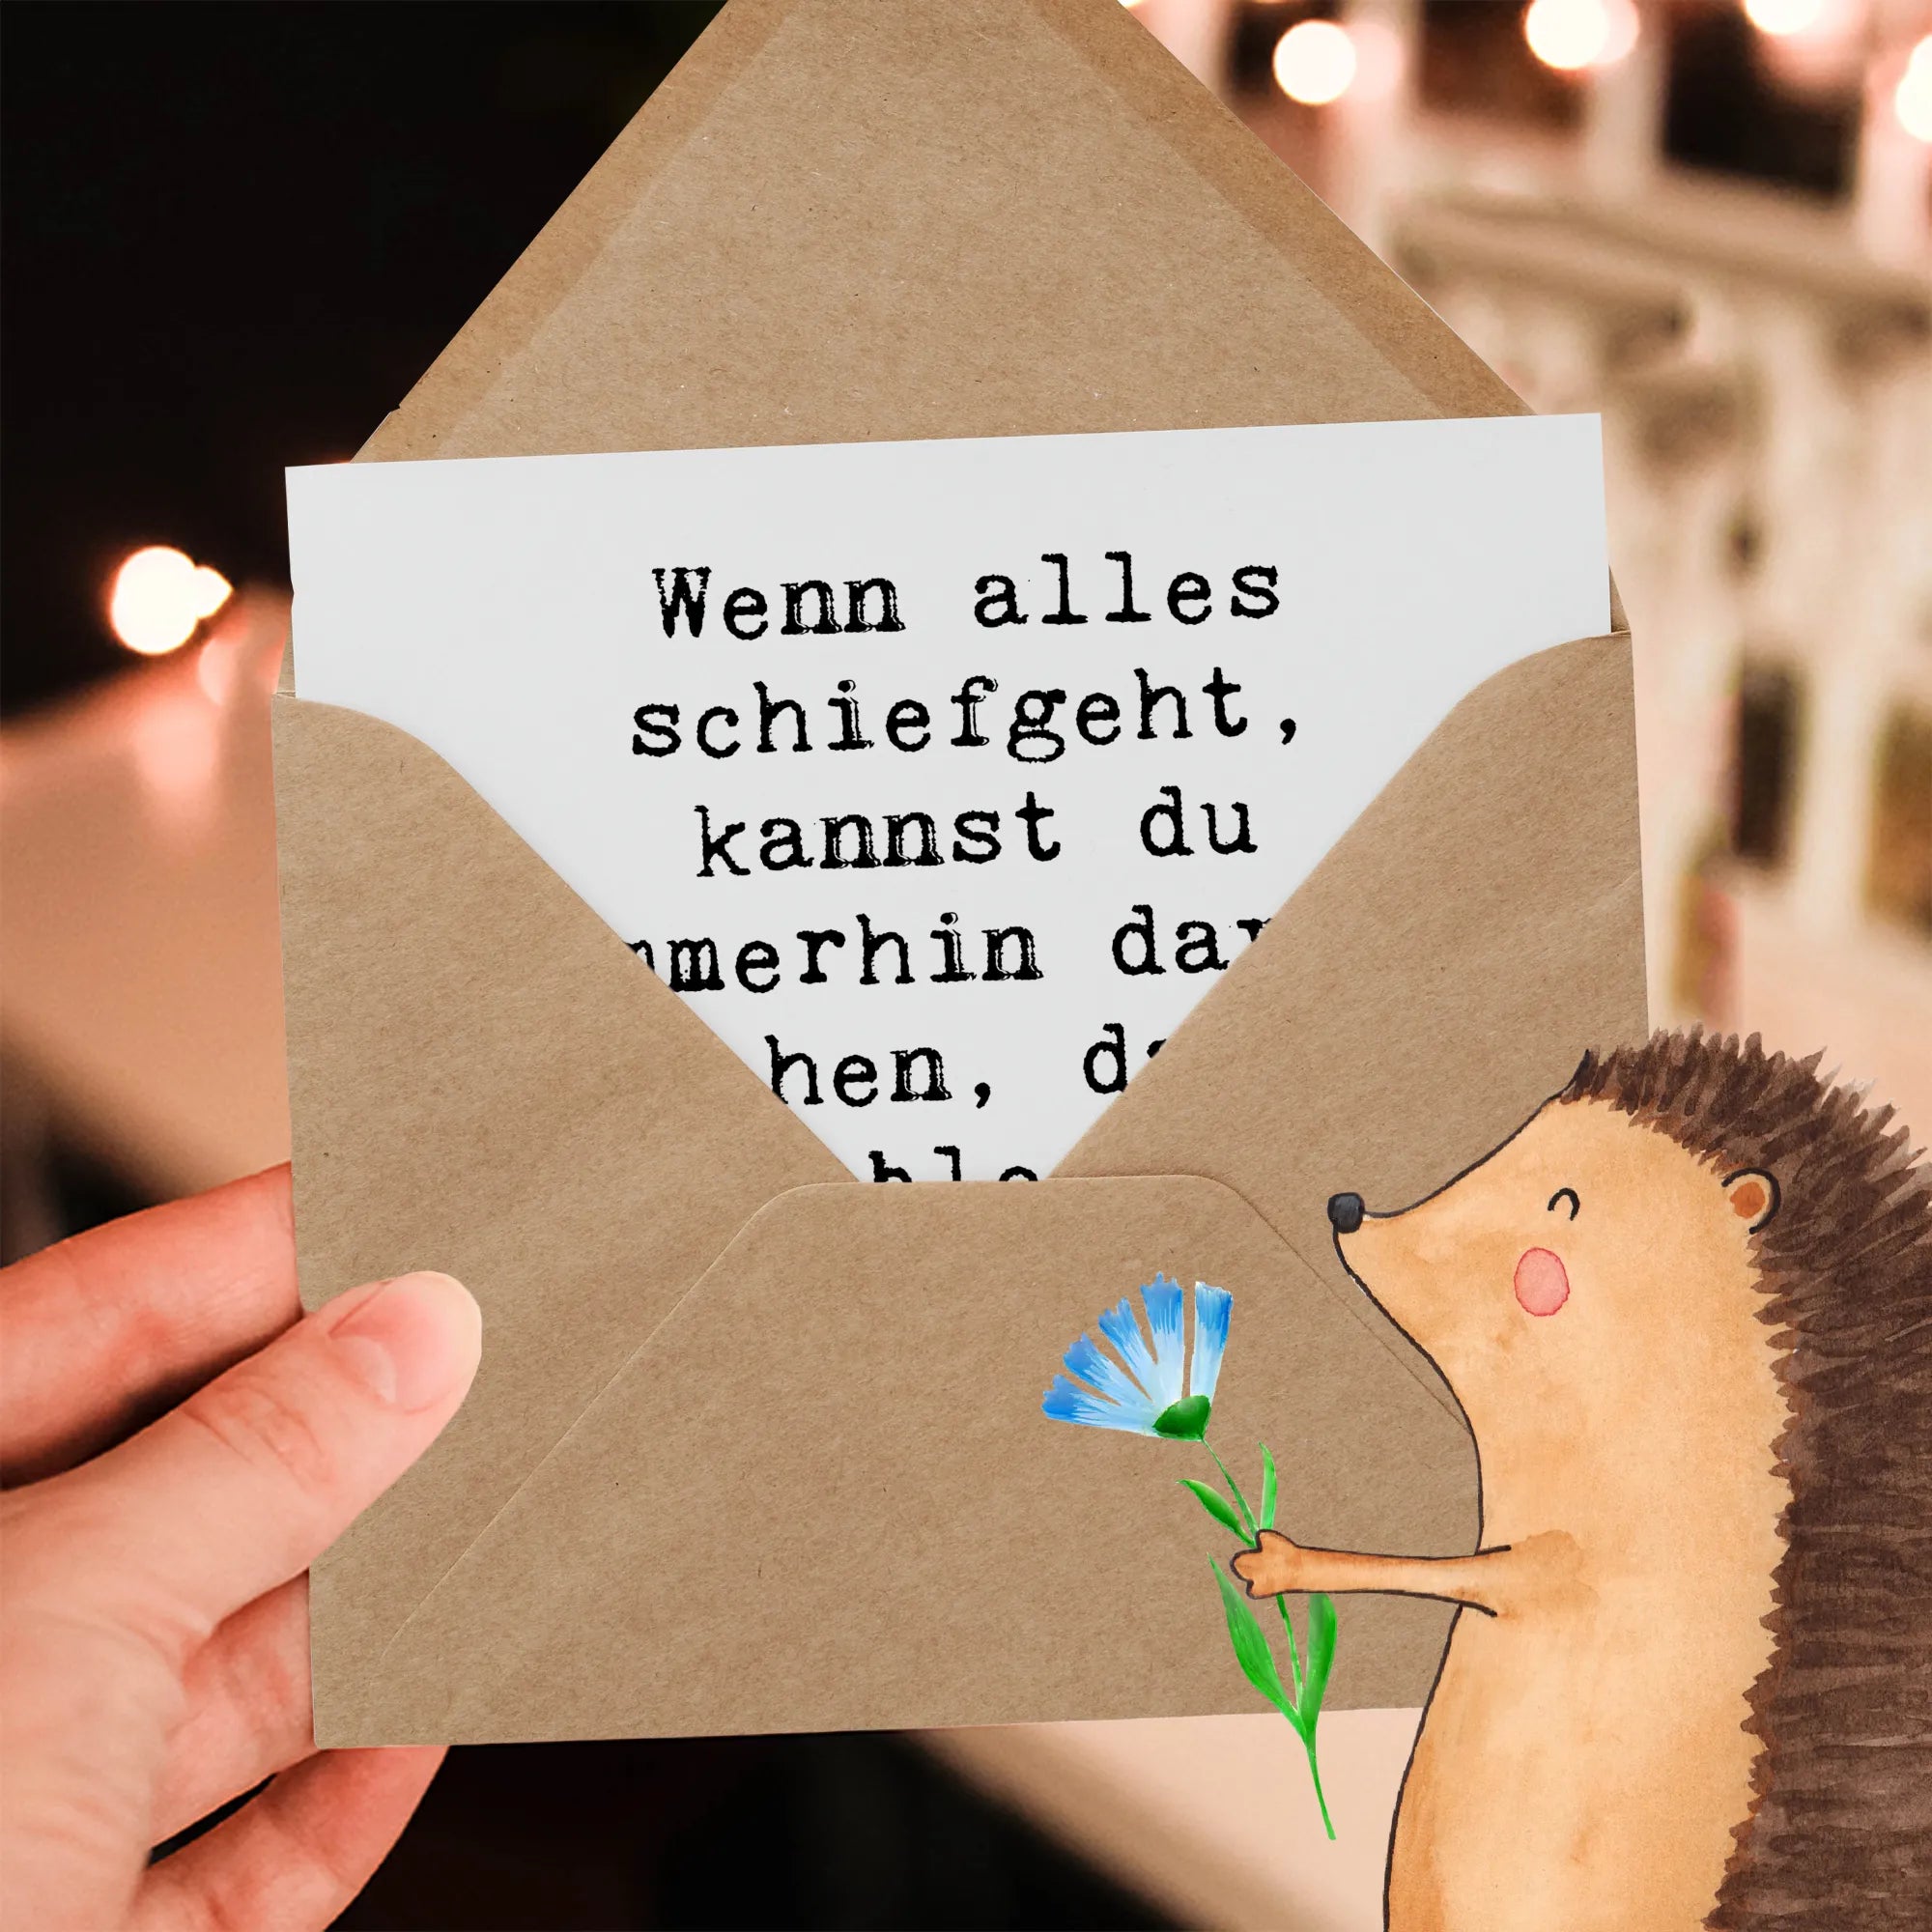 Wenn alles
schiefgeht,
kannst du
mmerhin dar
hen, da
ble